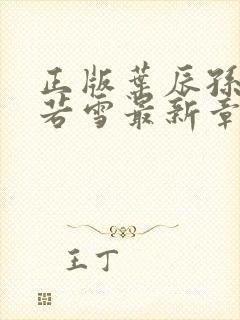 正版叶辰孙
若雪最新章
王丁